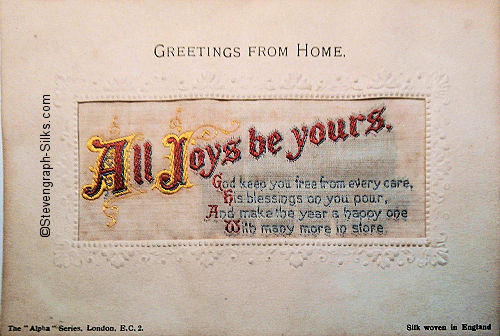 GREETINGS FROM HOME.
All Joys be yours.
God keep you free from every care,
His blessings on you pour,
And make the year a happy one
With many more in store.
The "Alpha" Series, London, E.C. 2.
Silk woven in England
©Stevengraph-Silks.com